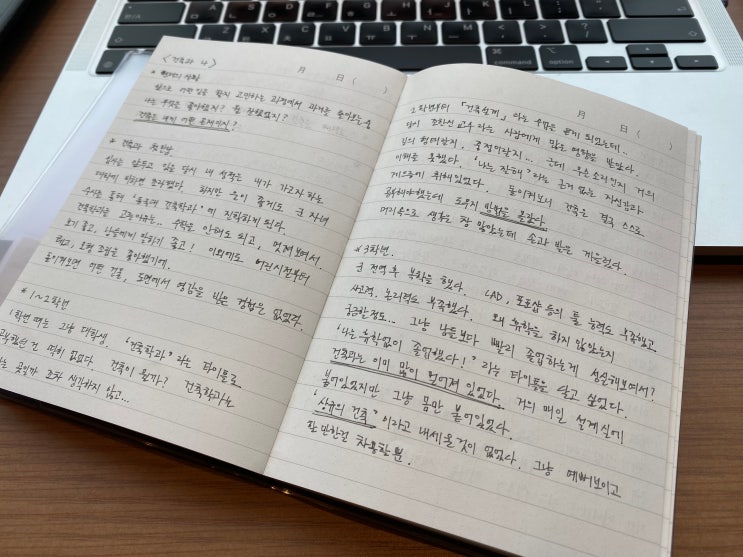 <건축과 나>
月 日( )
* 현재의 상황
앞으로 어떤 일을 할지 고민하는 과정에서 과거를 돌아보는 중
나는 무엇을 좋아했지? 뭘 잘했었지?
건축은 내게 어떤 존재이지?
* 건축과 첫만남
입시를 앞두고 있을 당시 내 성적은 내가 가고자 하는
대학에 비하면 초라했다. 하지만 운이 좋게도 군 자녀
수시를 통해 '홍익대 건축학과'에 진학하게 된다.
건축학과를 고른 이유는.. 수학을 안해도 되고, 멋져보여서.
보기 좋고, 남들에게 말하기 좋고! 이외에도 어린시절부터
레고, 모형 조립을 좋아했기에.
돌이켜보면 어떤 건물, 도면에서 영감을 받은 경험은 없었다.
* 1~2학년
1학년 때는 그냥 대학생. '건축학과'라는 타이틀로
공부했던 건 딱히 없었다. 건축이 뭔가? 건축학과는
하는 곳일까 조차 생각하지 않고...
月 日( )
2학년부터 「건축설계」라는 수업을 듣게 되었는데..
당시 조한신 교수라는 사람에게 많은 영향을 받았다.
집의 형태란지, 중정이란지... 근데 무슨 소리인지 거의
이해를 못했다. '나는 잘해'라는 근거 없는 자신감과
게으름에 취해있었다. 돌이켜보니 건축은 결국 스스로
공부해야했는데 도무지 방법을 몰랐다.
머리속으로 생각도 참 많았는데 손과 발은 게을렀다.
* 3학년.
군 전역 후 복학을 했다. CAD, 포토샵 등의 툴 능력도 부족했고
사고력, 논리력도 부족했다. 왜 휴학을 하지 않았는지
궁금할정도... 그냥 남들보다 빨리 졸업하는게 성실해보여서?
'나는 휴학없이 졸업했다!'라는 타이틀을 달고 싶었다.
건축과는 이미 많이 멀어져 있었다. 거의 매일 설계실에
붙어있었지만 그냥 몸만 붙어있었다.
'상규의 건축'이라고 내세울것이 없었다. 그냥 예뻐보이고
할 만한건 차용할 뿐.
control
option
command